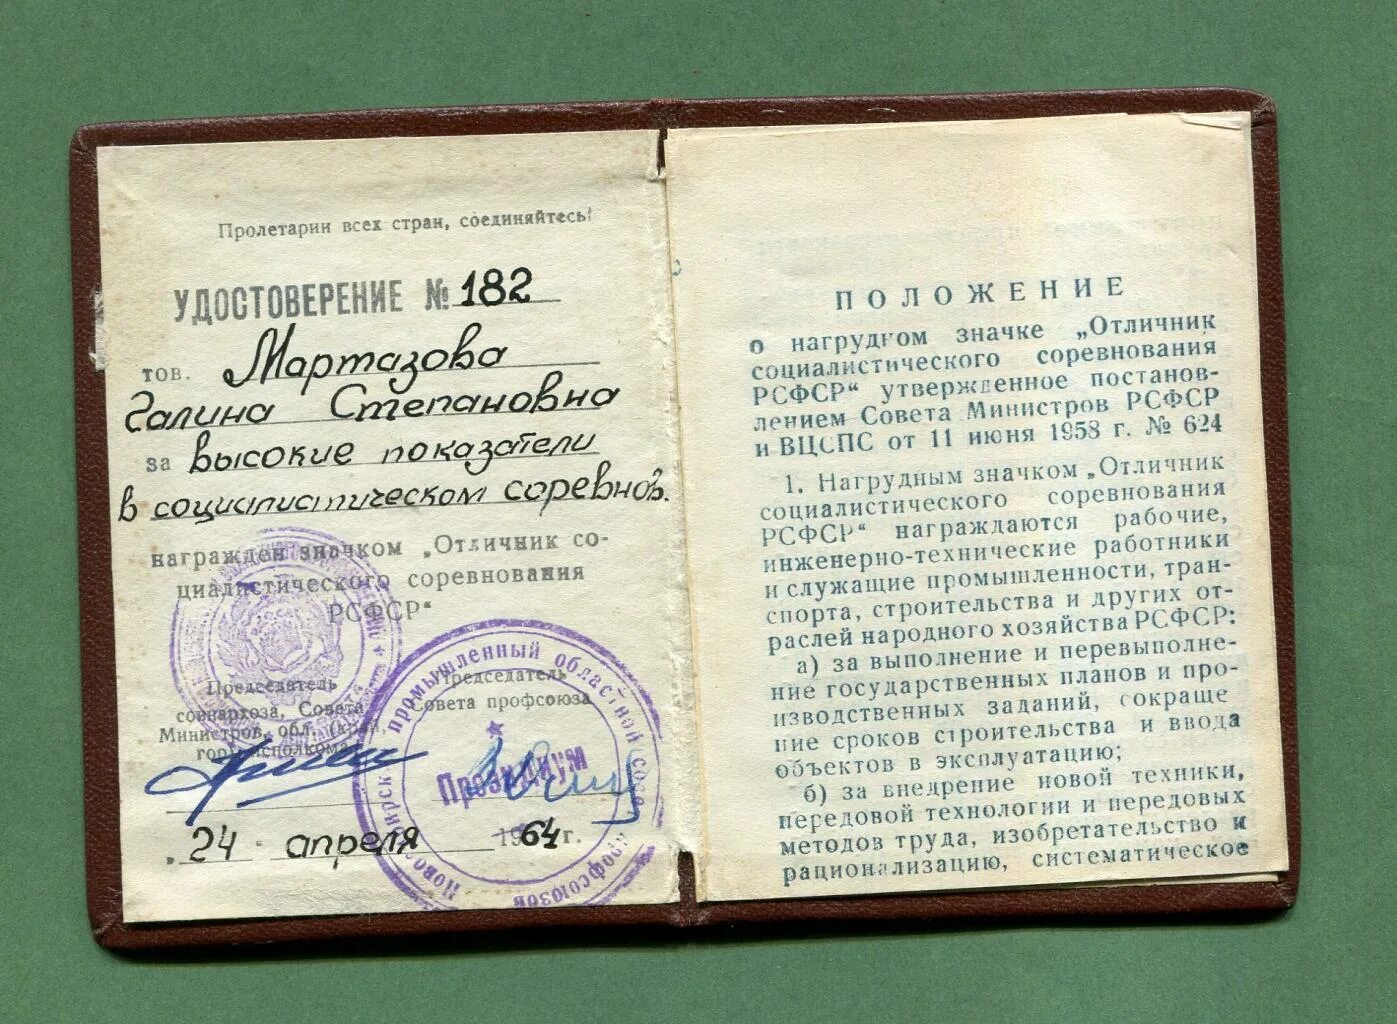 Пролетарии всех стран, соединяйтесь!
УДОСТОВЕРЕНИЕ № 182
тов. Мартазова
Галина Степановна
за высокие показатели
в социалистическом соревнов.
награжден значком „Отличник со-
циалистического соревнования
РСФСР"
Председатель
совнархоза, Совета
Министров, обл. (край,
гор) исполкома
Председатель
Совета профсоюза
Новосибирск промышленный областной совет профсоюзов
Президиум
„24" апреля 1964 г.
ПОЛОЖЕНИЕ
о нагрудном значке „Отличник
социалистического соревнования
РСФСР" утвержденное постанов-
лением Совета Министров РСФСР
и ВЦСПС от 11 июня 1958 г. № 624
1. Нагрудным значком „Отличник
социалистического соревнования
РСФСР" награждаются рабочие,
инженерно-технические работники
и служащие промышленности, тран-
спорта, строительства и других от-
раслей народного хозяйства РСФСР:
а) за выполнение и перевыполне-
ние государственных планов и про-
изводственных заданий, сокраще
ние сроков строительства и ввода
объектов в эксплуатацию;
б) за внедрение новой техники,
передовой технологии и передовых
методов труда, изобретательство и
рационализацию, систематическое